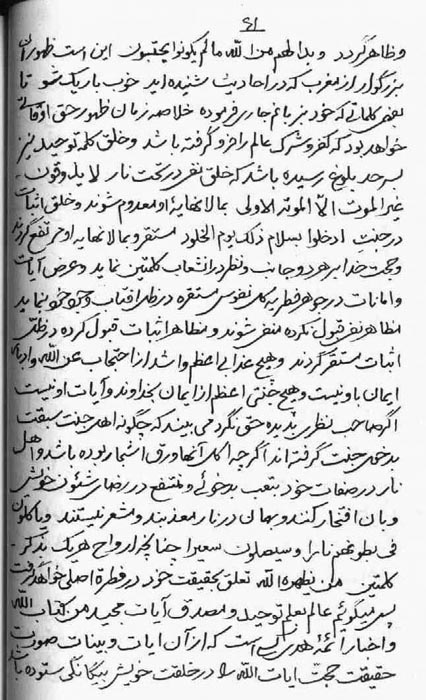 ۶۱
وظاهر گردد وبدا لهم من الله مالم یکونوا یحتسبون این است ظهور آن
بزرگوار از مغرب که در احادیث شنیده اید خوب باریک شو تا
بعض کلماتی که خود نیز باغم جاری فرموده خلاصه زمان ظهور حق اوقاتی
خواهد بود که کفر وشرک عالم را فرو گرفته باشد وخلق کلمه توحید نیز
بسر حد بلوغ رسیده باشد که خلق نفی در تحت نار لا یذوقون
غیر الموت الا الموتة الاولی بما لا نهایه او معدوم شوند وخلق اثبات
در جنت ادخلوا بسلام ذلک یوم الخلود مستقر وبما لا نهایه او مرتفع گردند
وحجت خدا بر هر دو جانب ونظر در انشعاب کلمتین نماید وعرض آیات
وامانات در جوهر فطریه کل نفوس مستقره در ظل آفتاب وجود خود نماید
مظاهر نفی قبول نکرده منفی شوند ومظاهر اثبات قبول کرده در ظل
اثبات مستقر گردند وهیچ عذابی اعظم واشد از احتجاب عن الله واد
ایمان باو نیست وهیچ جنتی اعظم از ایمان بخداوند وآیات او نیست
اگر صاحب نظری بدیده حق نگرد می بیند که چگونه اهل جنت سبقت
بدخول جنت گرفته اند اگر چه اکل آنها ورق اشجار بوده باشد واهل
نار در صفعات خود بتعب بدخولی ومتنفع در رضای شئون خویش
وبآن افتخار کنند وبهمان در نار معذبند ومشعر نیستند ویأکلون
فی بطونهم نارا وسیصلون سعیرا چنانچه ارواح هر یک بذکر
کلمتین من یظهره الله تعلق بحقیقت خود در فطرة اصلی خواهد گرفت
پس میگوئیم عالم بعلم توحید ومصدق آیات مجید من کتاب الله
واخبار ائمهٔ هدی است که از آن آیات وبینات صورت
حقیقت حجت آیات الله را در خلقت خویش بیگانگی ستوده باشد